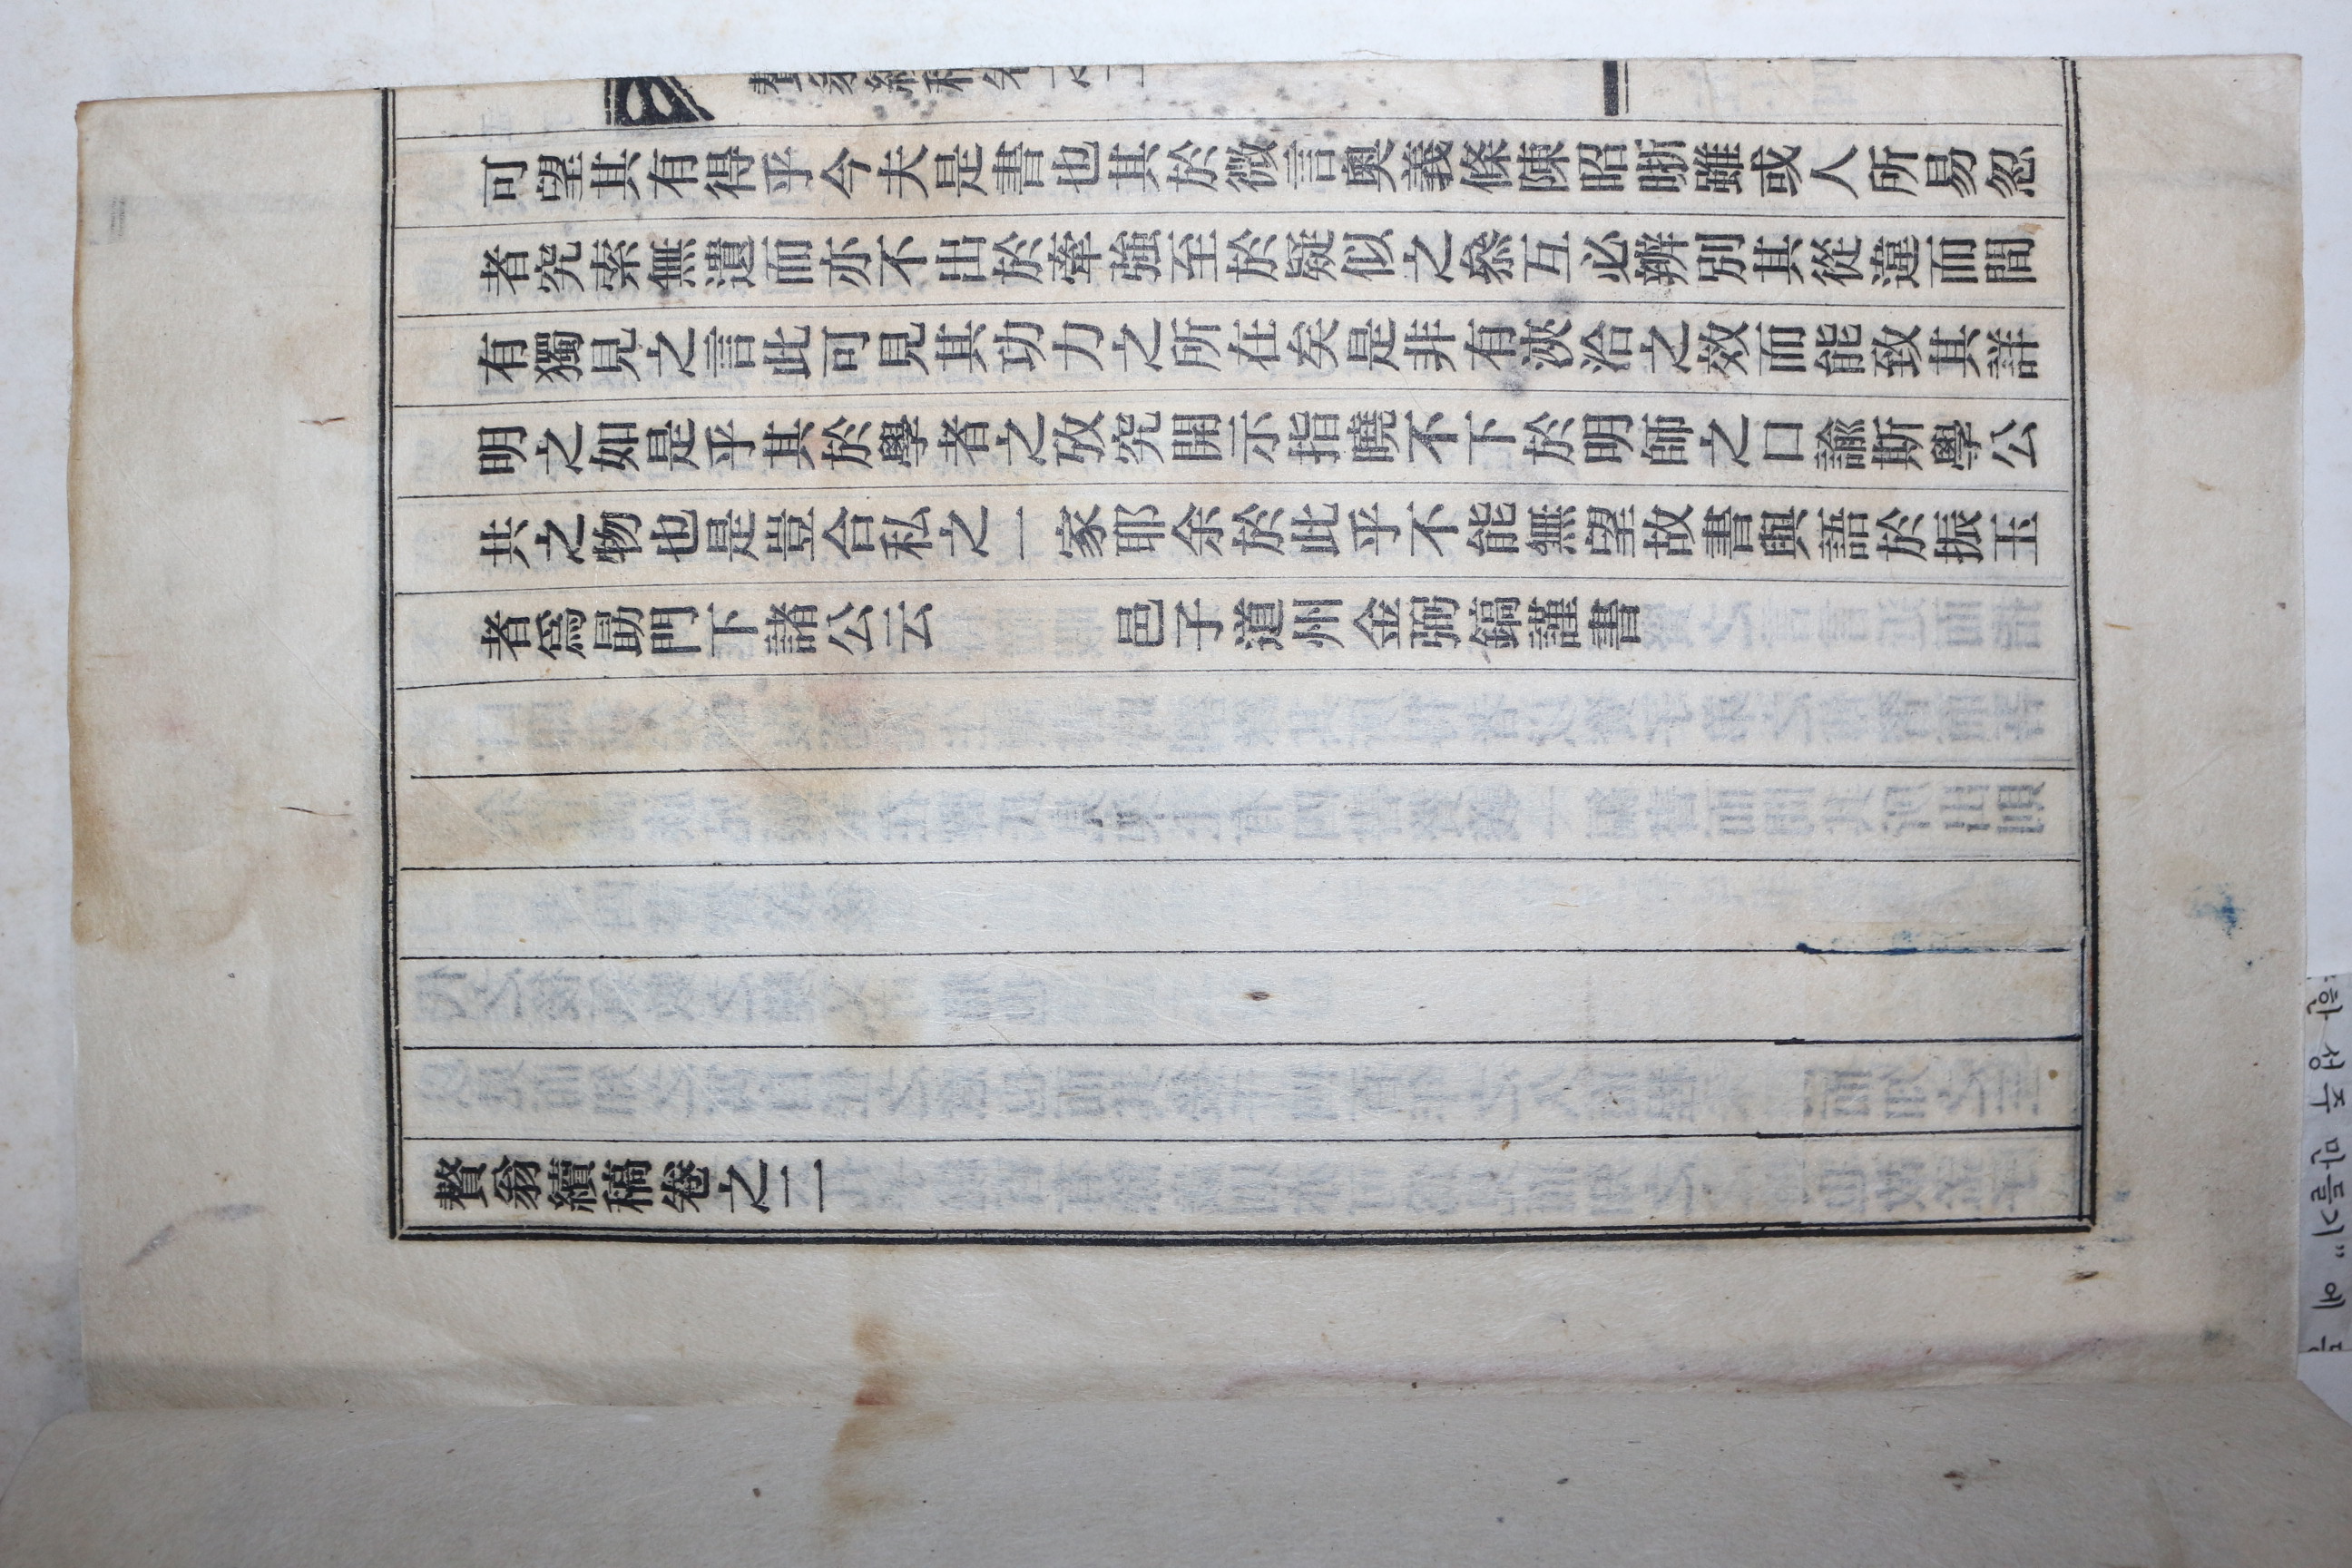 可望其有得乎今夫是書也其於微言奧義條陳昭晣雖或人所易忽
者究索無遺而亦不出於牽強至於疑似之叅互必辨別其從違而間
有獨見之言此可見其功力之所在矣是非有浹洽之效而能致其詳
明之如是乎其於學者之攷究開示指曉不下於明師之口諭斯學公
共之物也是豈合私之一家耶余於此乎不能無望故書與語於振玉
者爲勗門下諸公云 邑子道州金弼鎬謹書
贅翁續稿卷之二
贅翁續稿卷之二